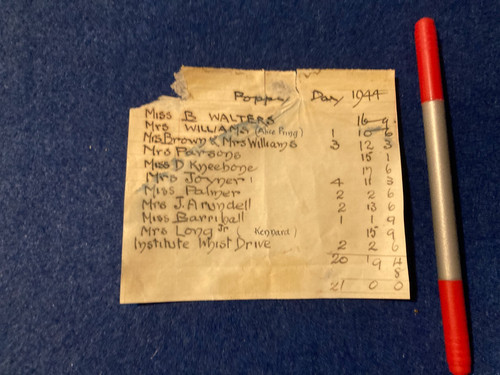 Poppy Day 1944
Miss B WALTERS 16 9
Mrs WILLIAMS (Alice Pring) 1 10 6
Mrs Brown & Mrs Williams 3 12 3
Mrs Parsons 15 1
Miss D Kneebone 17 6
Mrs Joyner 4 11 3
Miss Palmer 2 2 6
Mrs J. Arundell 2 13 6
Miss Barriball 1 1 9
Mrs Long Jr (Kennard) 15 9
Institute Whist Drive 2 2 6
20 19 4
8
21 0 0